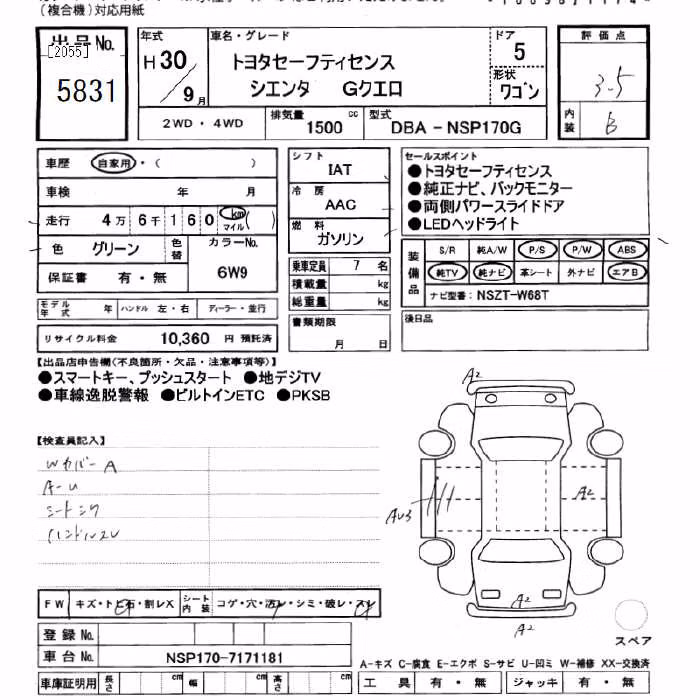 (複合機)対応用紙
出品No. [2055] 5831
年式 H30/9月
車名・グレード トヨタセーフティセンス
シエンタ Gクエロ
ドア 5
形状 ワゴン
評価点 3.5
内装 B
2WD・4WD
排気量 1500 cc
型式 DBA-NSP170G
車歴 自家用・( )
車検 年 月
走行 4万6千160 km マイル ( )
色 グリーン 色替 カラーNo. 6W9
保証書 有・無
シフト IAT
冷房 AAC
燃料 ガソリン
乗車定員 7 名
積載量 kg
総重量 kg
セールスポイント
●トヨタセーフティセンス
●純正ナビ、バックモニター
●両側パワースライドドア
●LEDヘッドライト
装備品 S/R 純A/W P/S P/W ABS
純TV 純ナビ 革シート 外ナビ エアB
ナビ型番: NSZT-W68T
モデル年式 年 ハンドル 左・右 ディーラー・並行
リサイクル料金 10,360 円 預託済
書類期限 月 日
後日品
【出品店申告欄(不良箇所・欠品・注意事項等)】
●スマートキー、プッシュスタート ●地デジTV
●車線逸脱警報 ●ビルトインETC ●PKSB
【検査員記入】
WカバーA
A-U
シートシワ
ハンドルスレ
A2
AU3
A2
A2
A2
FW キズ・トビ石・割レX シート内装 コゲ・穴・汚レ・シミ・破レ・スレ
登録No.
車台No. NSP170-7171181
スペア
A-キズ C-腐食 E-エクボ S-サビ U-凹ミ W-補修 XX-交換済
車庫証明用 長さ cm 幅 cm 高さ cm
工具 有・無 ジャッキ 有・無